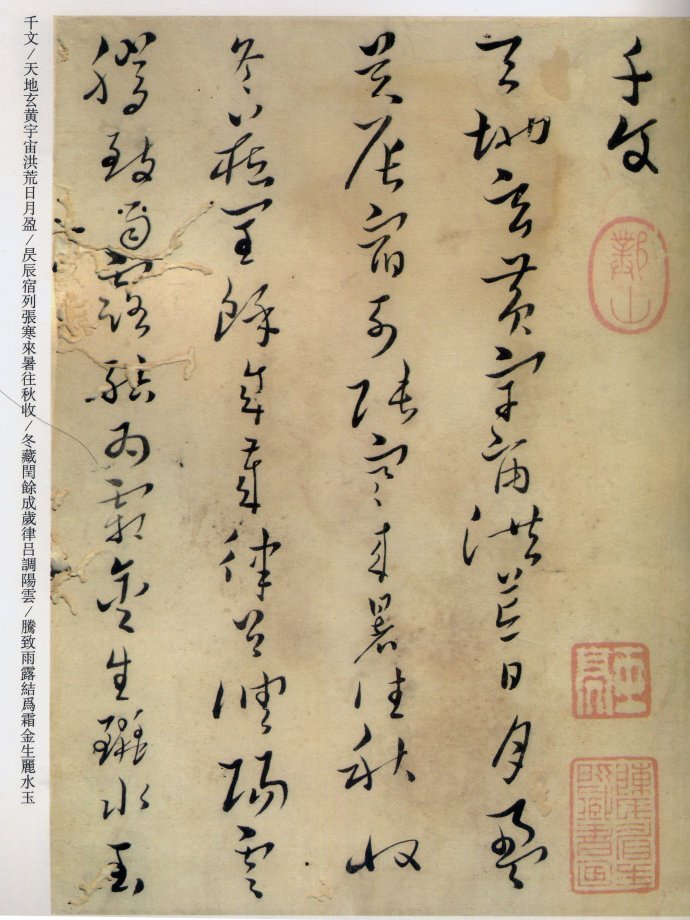 千文
天地玄黄宇宙洪荒日月盈
昃辰宿列張寒來暑往秋收
冬藏閏餘成歲律吕調陽雲
騰致雨露結為霜金生麗水玉
千文/天地玄黄宇宙洪荒日月盈/昃辰宿列張寒來暑往秋收/冬藏閏餘成歲律吕調陽雲/騰致雨露結爲霜金生麗水玉